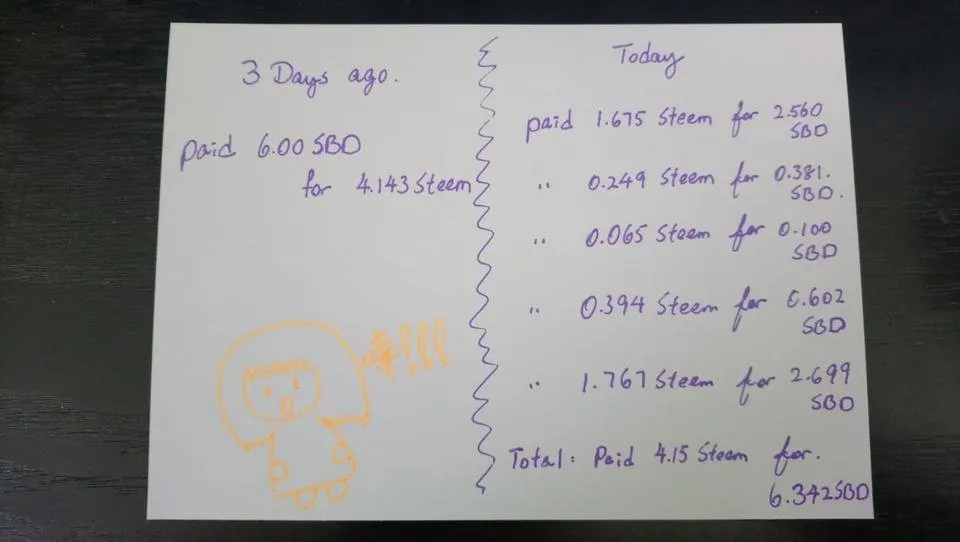 3 Days ago.
paid 6.00 SBD
for 4.143 Steem
Today
paid 1.675 Steem for 2.560
SBD
" 0.249 Steem for 0.381.
SBD.
" 0.065 Steem for 0.100
SBD
" 0.394 Steem for 0.602
SBD
" 1.767 Steem for 2.699
SBD
Total: Paid 4.15 Steem for.
6.342 SBD
!!!